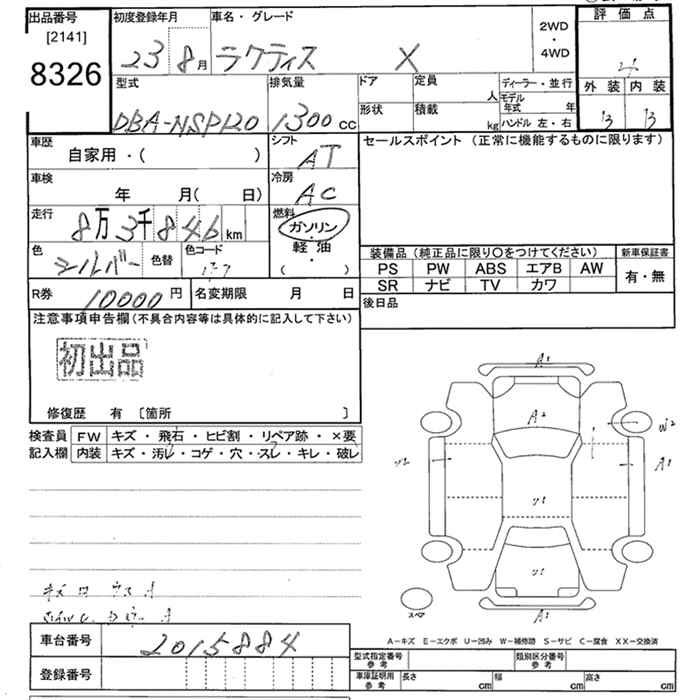 出品番号 初度登録年月 車名・グレード 2WD・4WD 評価点
[2141] 8326 23 8月 ラクティス X 4
型式 排気量 ドア 定員 人 ディーラー・並行 外装 内装
DBA-NSP120 1300cc 形状 積載 kg モデル年式 年 ハンドル 左・右 B B
車歴 自家用・( ) シフト AT セールスポイント (正常に機能するものに限ります)
車検 年 月(日) 冷房 AC
走行 8万3千846km 燃料 ガソリン
軽・油
・
( )
色 シルバー 色替 色コード
装備品(純正品に限り○をつけてください) 新車保証書
PS PW ABS エアB AW 有・無
SR ナビ TV カワ
R券 10000円 名変期限 月 日 後日品
注意事項申告欄(不具合内容等は具体的に記入して下さい)
初出品
修復歴 有 [箇所 ]
検査員記入欄 FW キズ・飛石・ヒビ割・リペア跡・×要
内装 キズ・汚レ・コゲ・穴・スレ・キレ・破レ
A1
A2
W2
A1
U1
U1
A1
スペア
A-キズ E-エクボ U-凹み W-補修跡 S-サビ C-腐食 XX-交換済
車台番号 2015884
登録番号
型式指定番号 参考 類別区分番号 参考
車庫証明用 参考 長さ cm 幅 cm 高さ cm